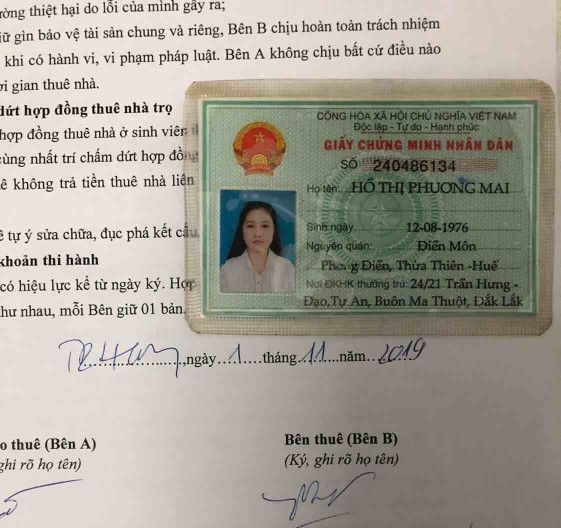 ường thiệt hại do lỗi của mình gây ra;
iữ gìn bảo vệ tài sản chung và riêng, Bên B chịu hoàn toàn trách nhiệm
khi có hành vi, vi phạm pháp luật. Bên A không chịu bất cứ điều nào
ời gian thuê nhà.
dứt hợp đồng thuê nhà trọ
hợp đồng thuê nhà ở sinh viên
cùng nhất trí chấm dứt hợp đồng
ê không trả tiền thuê nhà liên
ê tự ý sửa chữa, đục phá kết cấu
khoản thi hành
có hiệu lực kể từ ngày ký. Hợp
như nhau, mỗi Bên giữ 01 bản.
CỘNG HÒA XÃ HỘI CHỦ NGHĨA VIỆT NAM
Độc lập - Tự do - Hạnh phúc
GIẤY CHỨNG MINH NHÂN DÂN
SỐ 240486134
Họ tên: HỒ THỊ PHƯƠNG MAI
Sinh ngày 12-08-1976
Nguyên quán: Điền Môn
Phong Điền, Thừa Thiên -Huế
Nơi ĐKHK thường trú: 24/21 Trần Hưng -
Đạo,Tự An, Buôn Ma Thuột, Đắk Lắk
,ngày 1 tháng 11 năm 2019
o thuê (Bên A)
ghi rõ họ tên)
Bên thuê (Bên B)
(Ký, ghi rõ họ tên)